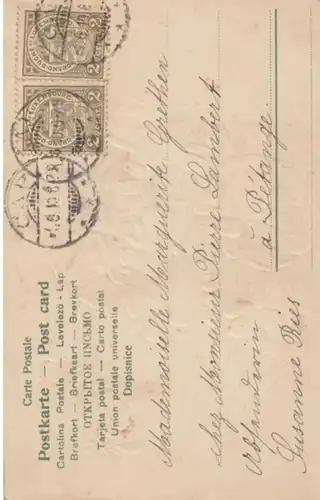 Carte Postale
Postkarte — Post card
Cartolina Postale — Levelező-Lap
Brefkort — Briefkaart — Brevkort
ОТКРЫТОЕ ПИСЬМО
Tarjeta postal — Carto postal
Union postale universelle
Dopisnice
Mademoiselle Marguerite Grethen
chez Monsieur Pierre Lambert
à Pétange.
Absenderin
Susanne Ries